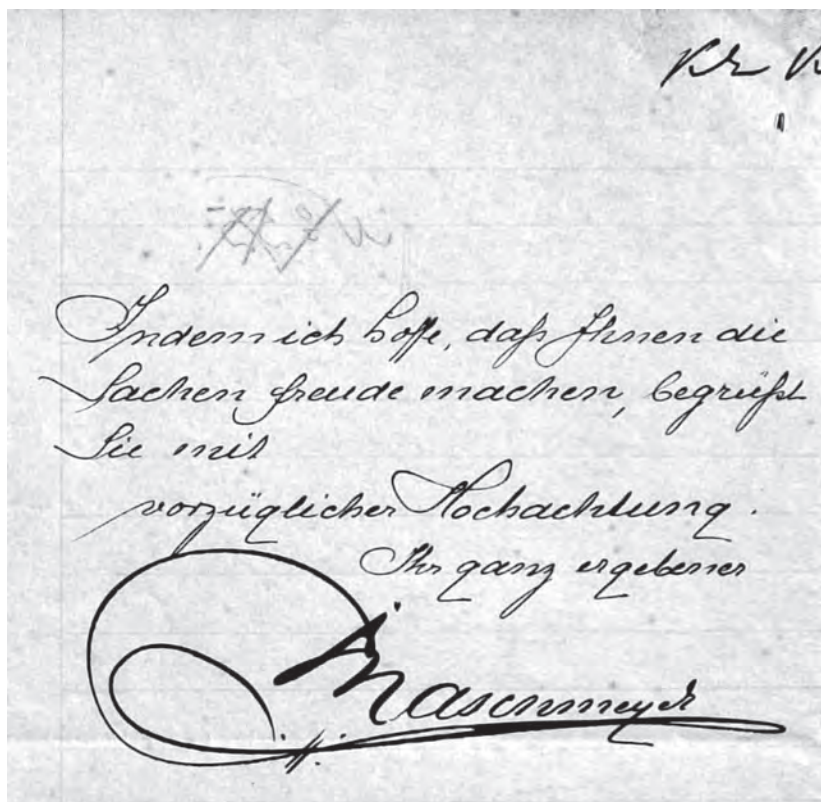 Indem ich hoffe, daß Ihnen die
Sachen freude machen, begrüßt
Sie mit
vorzüglicher Hochachtung.
Ihr ganz ergebener